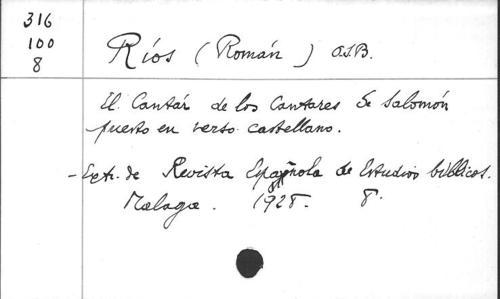 316
100
8
Ríos (Román) O.S.B.
El Cantár de los Cantares de Salomón
puesto en verso castellano.
- Extr. de Revista Española de Estudios bíblicos.
Malaga. 1928. 8.